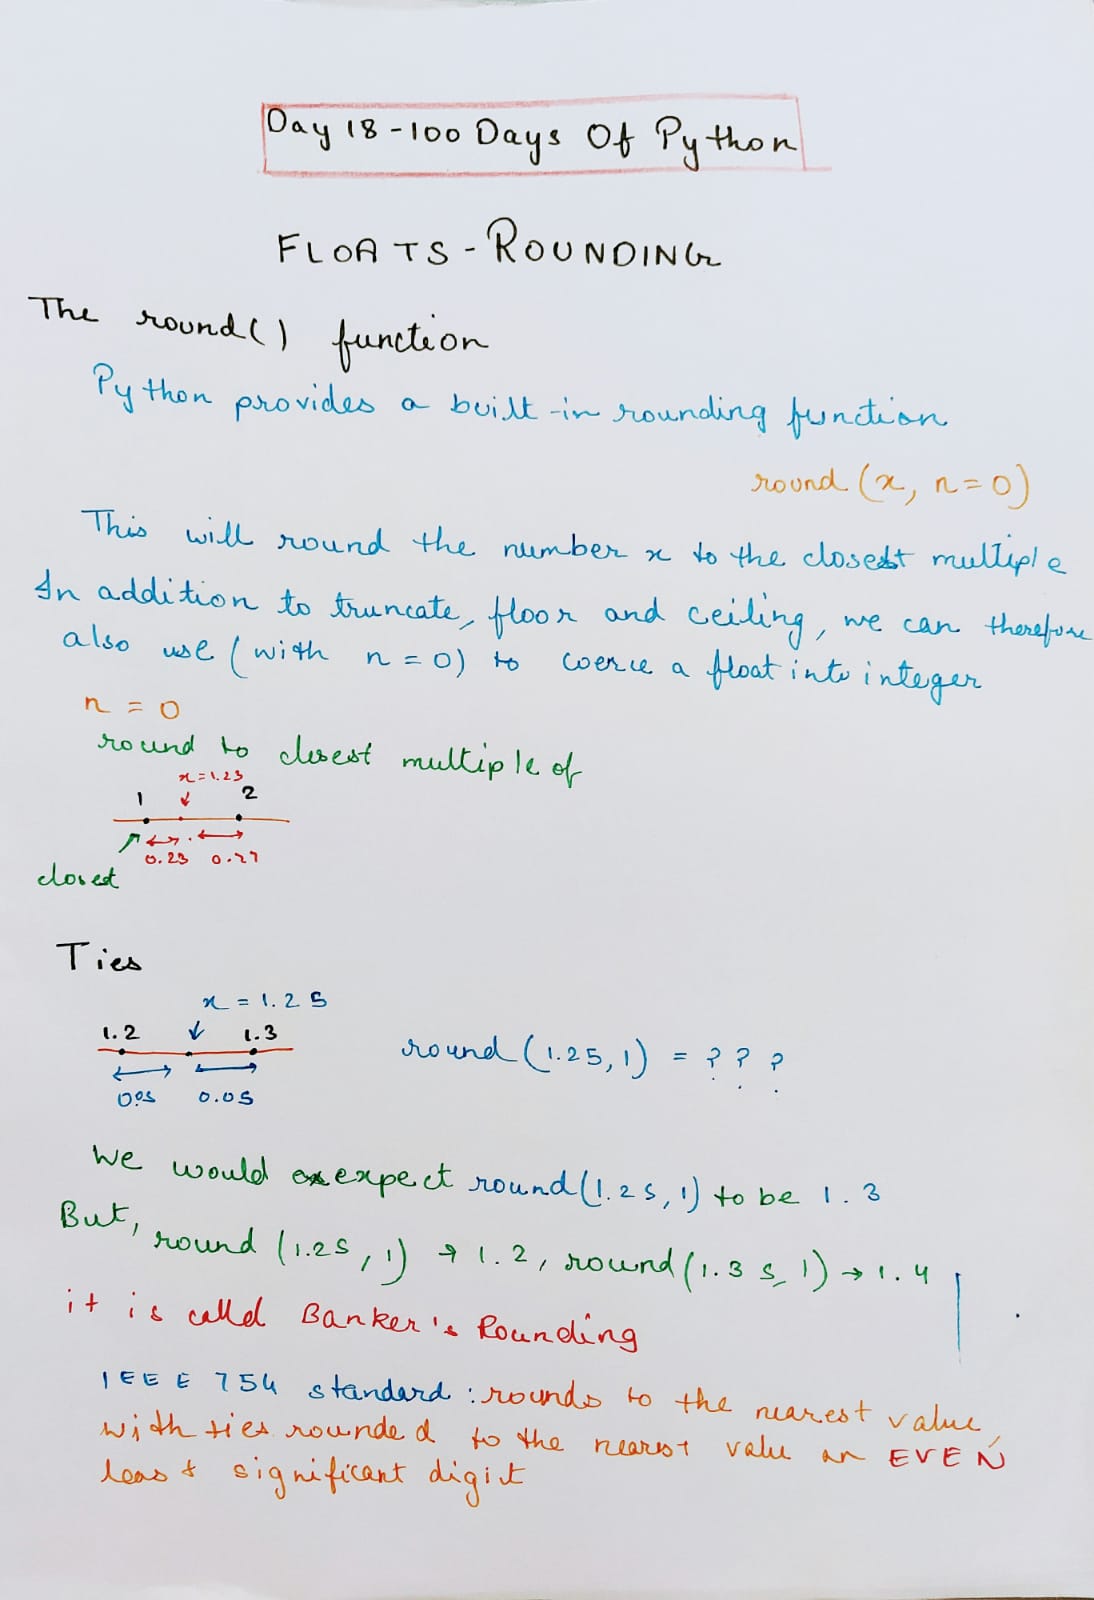 Day 18 - 100 Days Of Python
FLOATS - ROUNDING
The round() function
Python provides a built-in rounding function
round (x, n=0)
This will round the number x to the closest multiple
In addition to truncate, floor and ceiling, we can therefore
also use (with n=0) to coerce a float into integer
n = 0
round to closest multiple of
x=1.23
1 2
0.23 0.77
closest
Ties
x = 1.25
1.2 1.3
round (1.25, 1) = ???
0.05 0.05
We would expect round(1.25, 1) to be 1.3
But, round (1.25, 1) → 1.2, round(1.35, 1) → 1.4
it is called Banker's Rounding
IEEE 754 standard: rounds to the nearest value,
with ties rounded to the nearest value an EVEN
least significant digit